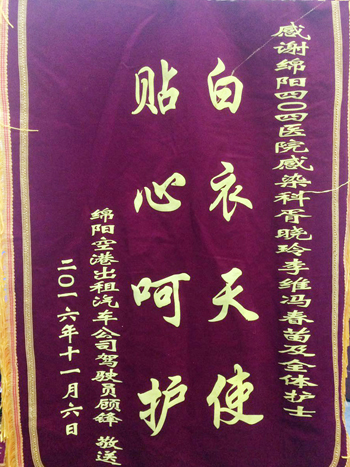 感谢绵阳四〇四医院感染科胥晓玲李维冯春苗及全体护士
白衣天使
贴心呵护
绵阳空港出租汽车公司驾驶员顾锋 敬送
二〇一六年十一月六日